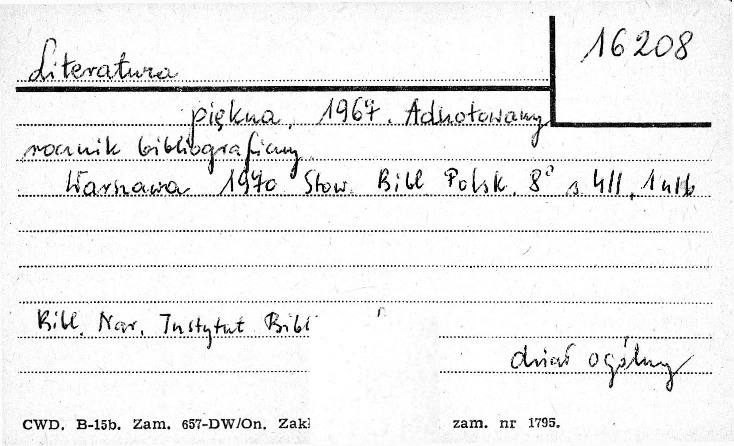 16208
Literatura
piękna, 1967. Adnotowany
rocznik bibliograficzny.
Warszawa 1970 Stow. Bibl Polsk. 8° s 411, 1 nlb
Bibl. Nar. Instytut Bibl
dział ogólny
CWD. B-15b. Zam. 657-DW/On. Zakł zam. nr 1795.